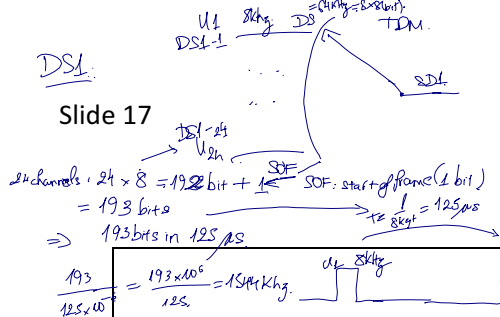 U1 8khz DS =64Khz=8x8bit).
DS1-1 TDM
DS1:
SD1
Slide 17
DS1-24
U24
SOF
24channels: 24 x 8 = 192bit + 1 SOF: start of frame (1 bit)
= 193 bits T= 1/8kgt = 125µs
=> 193bits in 125 µs.
193/125x10^-6 = 193x10^6/125 = 1544Khz. U1 8KHz